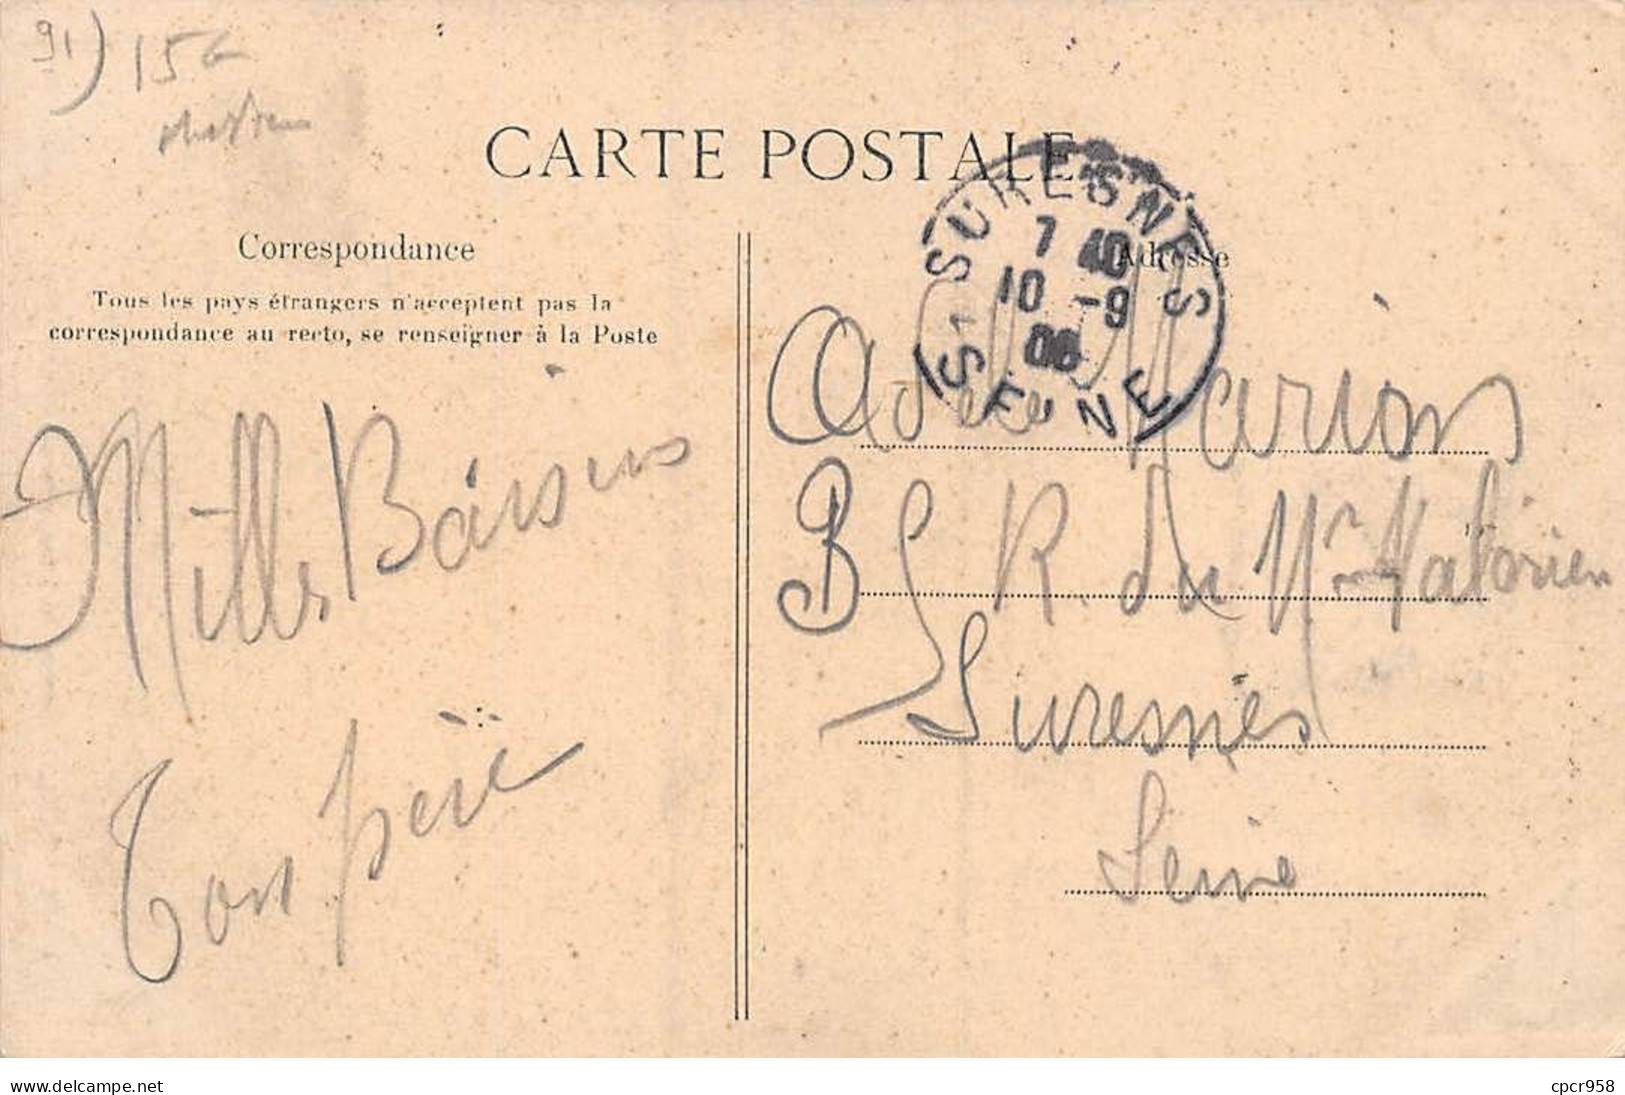 91) 15€
CARTE POSTALE
SURESNES
7 40
10 -9
06
SEINE
Correspondance
Adresse
Tous les pays étrangers n'acceptent pas la
correspondance au recto, se renseigner à la Poste
Marions
Mills Baisers
B R. du Mt Valérien
Suresnes
Ton père
Seine
delcampe.net
cpcr958